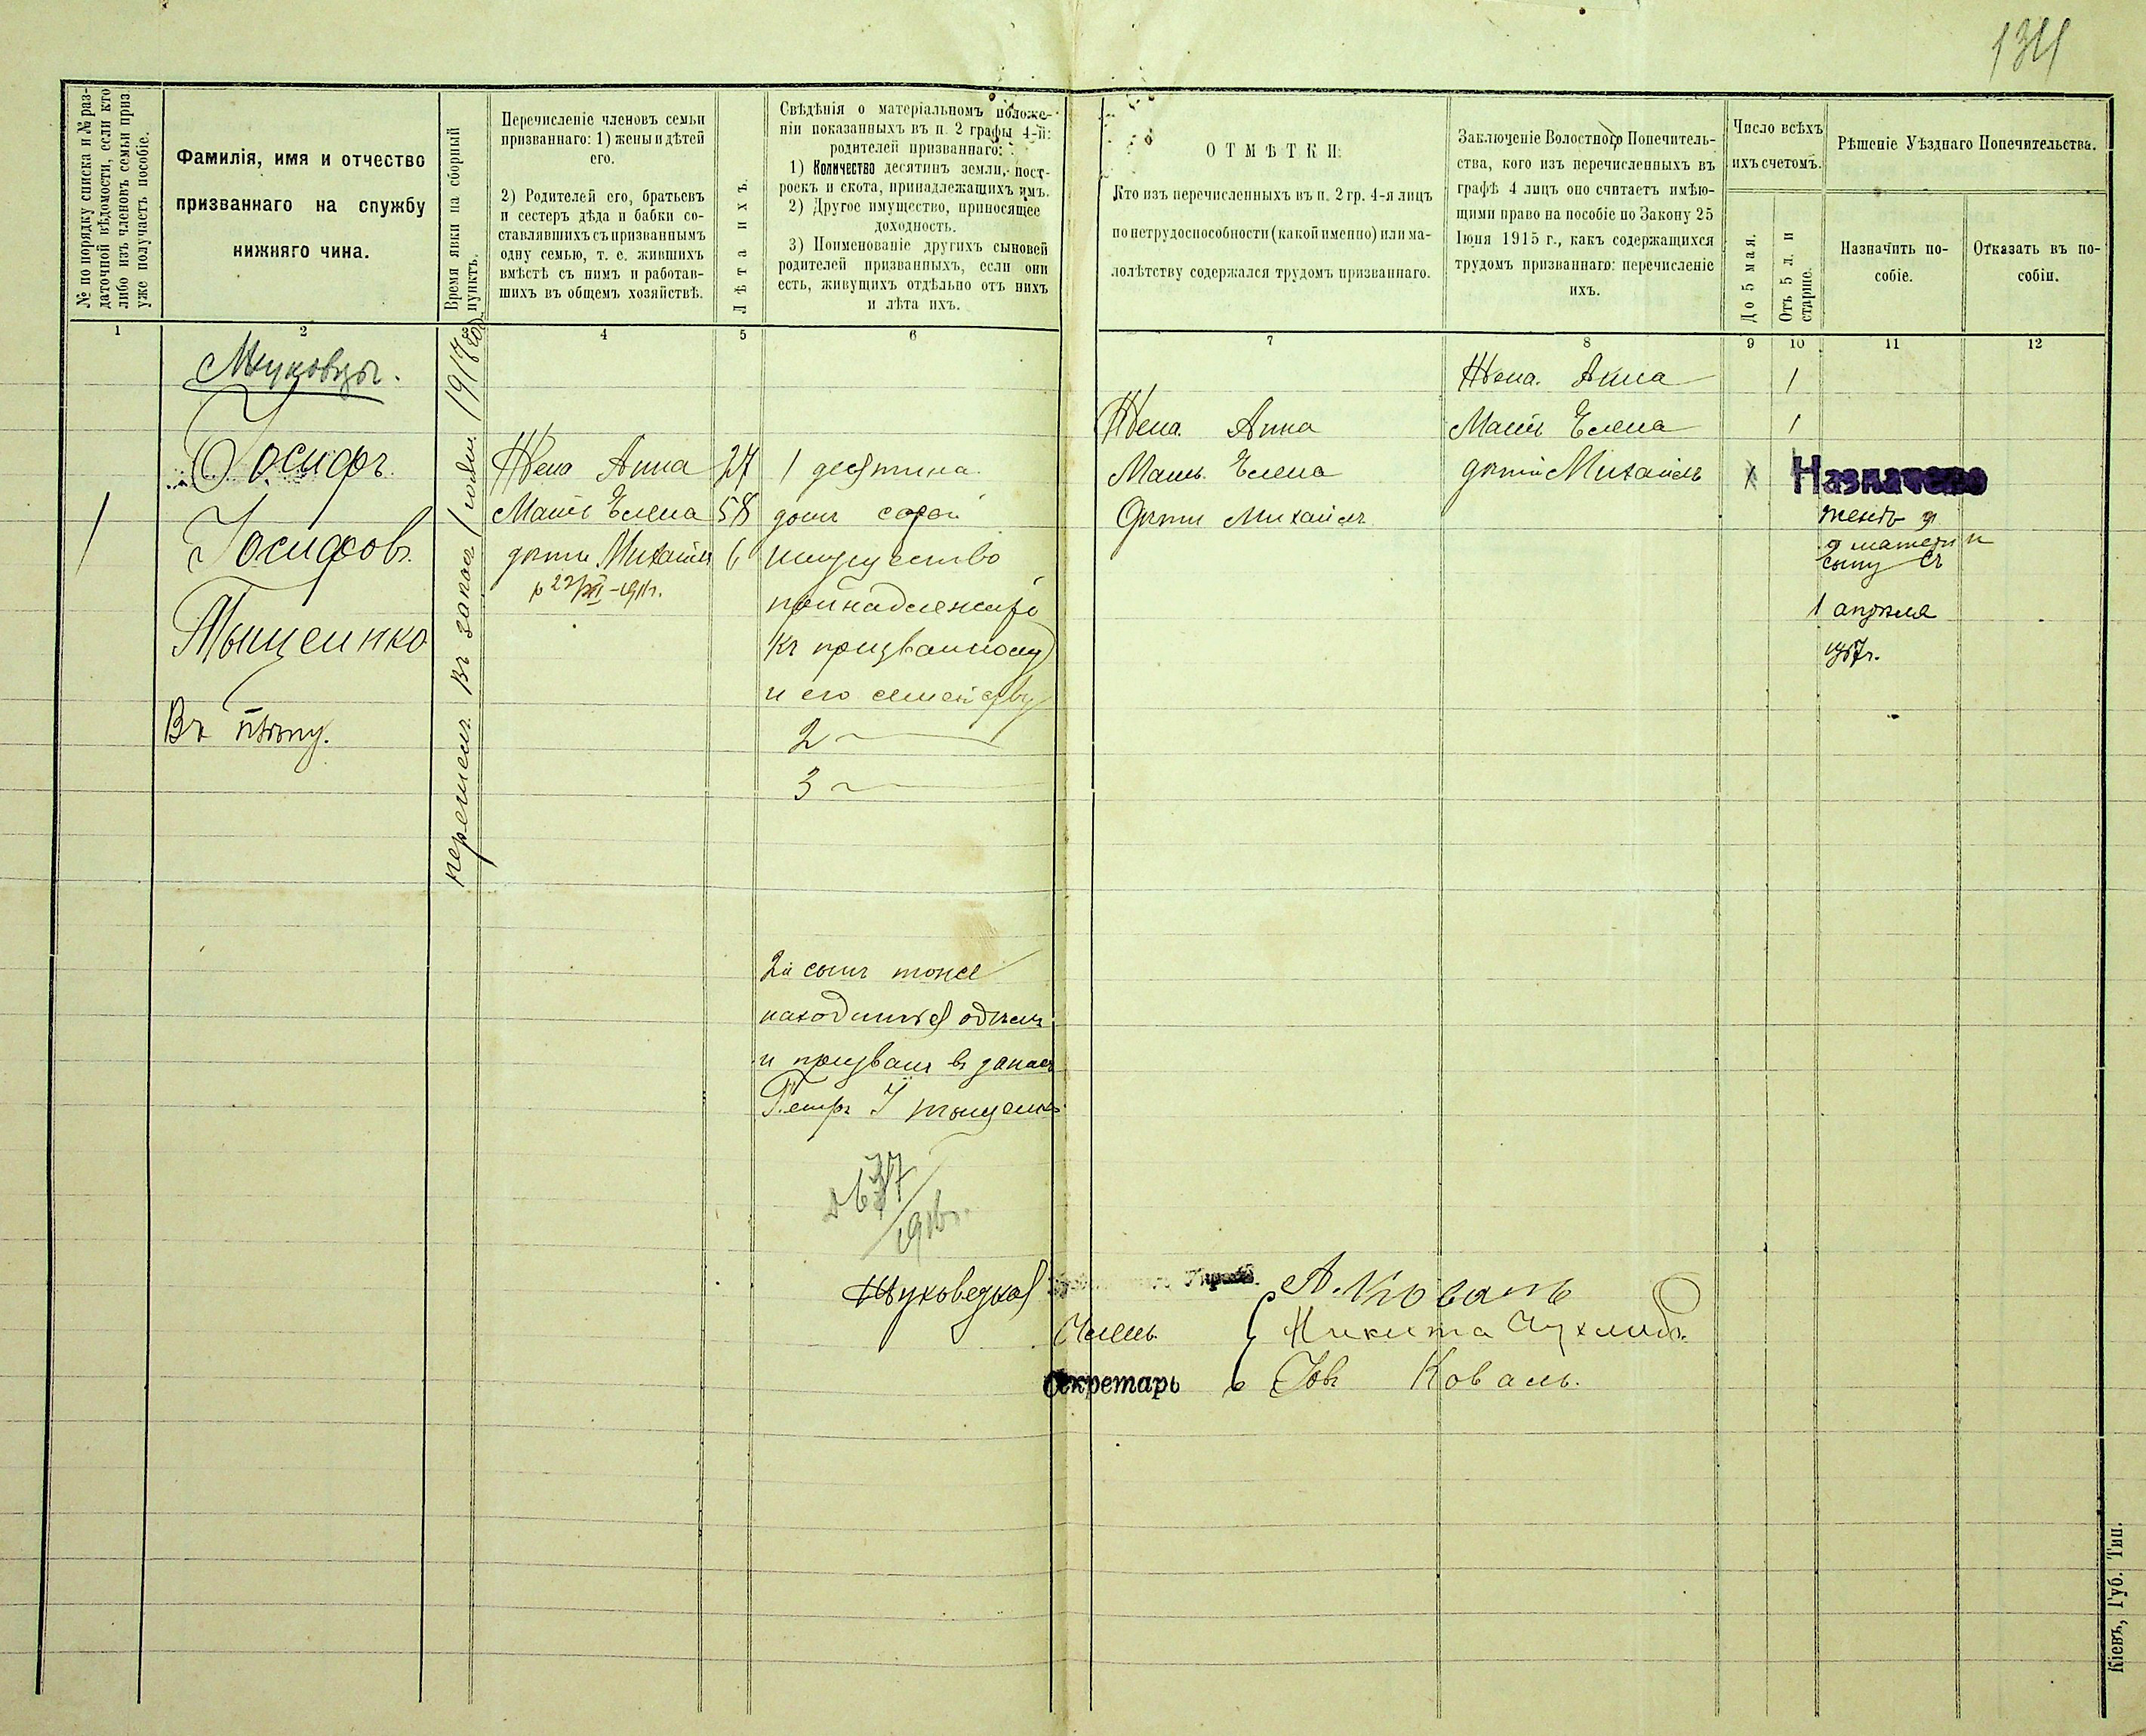 134
№ по порядку списка и № раз-
даточной вѣдомости, если кто
либо изъ членовъ семьи приз.
уже получаетъ пособіе.
Фамилія, имя и отчество
призваннаго на службу
нижняго чина.
Время явки на сборный
пунктъ.
Перечисленіе членовъ семьи
призваннаго: 1) жены и дѣтей
его.
2) Родителей его, братьевъ
и сестеръ дѣда и бабки со-
ставлявшихъ съ призваннымъ
одну семью, т. е. жившихъ
вмѣстѣ съ нимъ и работав-
шихъ въ общемъ хозяйствѣ.
Лѣта ихъ.
Свѣдѣнія о матеріальномъ положе-
ніи показанныхъ въ п. 2 графы 4-й:
родителей призваннаго:
1) Количество десятинъ земли, пост-
роекъ и скота, принадлежащихъ имъ.
2) Другое имущество, приносящее
доходность.
3) Поименованіе другихъ сыновей
родителей призванныхъ, если они
есть, живущихъ отдѣльно отъ нихъ
и лѣта ихъ.
ОТМѢТКИ:
Кто изъ перечисленныхъ въ п. 2 гр. 4-я лицъ
по нетрудоспособности (какой именно) или ма-
лолѣтству содержался трудомъ призваннаго.
Заключеніе Волостного Попечитель-
ства, кого изъ перечисленныхъ въ
графѣ 4 лицъ оно считаетъ имѣю-
щими право на пособіе по Закону 25
Іюня 1915 г., какъ содержащихся
трудомъ призваннаго: перечисленіе
ихъ.
Число всѣхъ
ихъ счетомъ.
До 5 мая.
Отъ 5 л. и
старше.
Рѣшеніе Уѣзднаго Попечительства.
Назначить по-
собіе.
Отказать въ по-
собіи.
1 2 3 4 5 6 7 8 9 10 11 12
1
Іосифъ
Іосифов.
Тыщенко
Въ
1917 год
Жена Анна 27
Мать Елена 58
дѣти Михаилъ 6
1 десятина
домъ сарай
имущество
принадлежитъ
къ призванному
и его семейству
2
3
2й сынъ тоже
находится
и призванъ въ запасъ
Петръ І Тыщенко
Жена Анна
Мать Елена
Дѣти Михаилъ
Жена Анна 1
Мать Елена 1
дѣти Михаилъ
Назначено
женѣ
матери и
сыну съ
1 апрѣля
1917г.
А. Коваль
Члены
Никита
Секретарь
Іовъ Коваль.
Кіевъ, Губ. Тип.